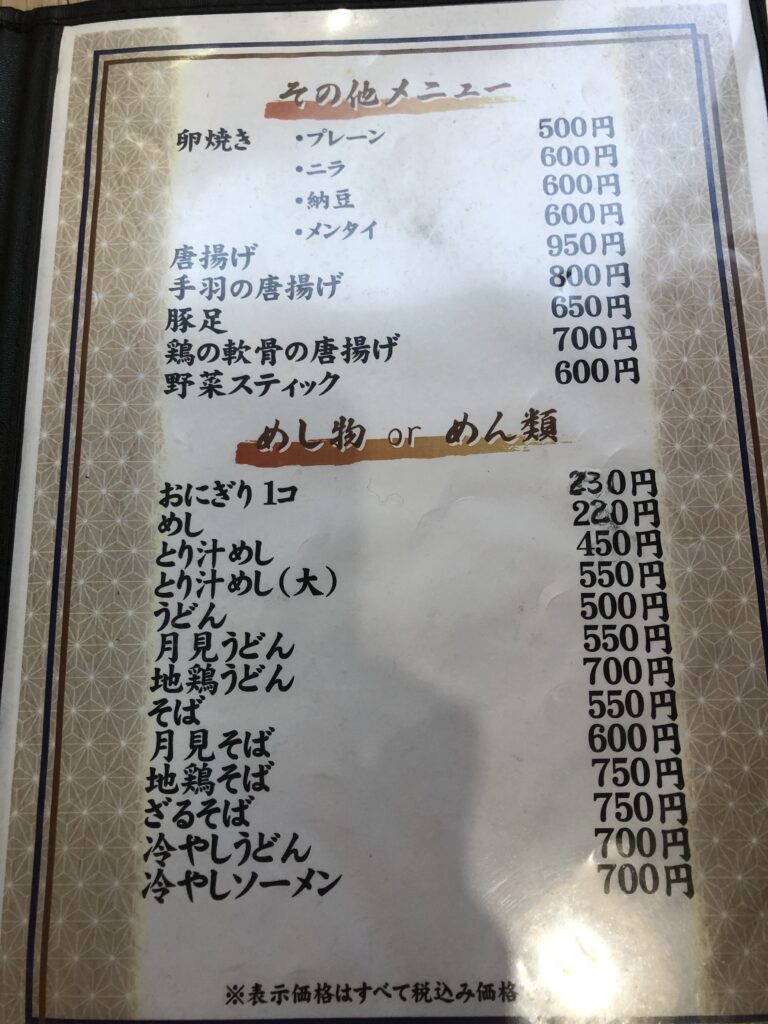 その他メニュー
卵焼き ・プレーン 500円
・ニラ 600円
・納豆 600円
・メンタイ 600円
唐揚げ 950円
手羽の唐揚げ 800円
豚足 650円
鶏の軟骨の唐揚げ 700円
野菜スティック 600円
めし物 or めん類
おにぎり 1コ 230円
めし 220円
とり汁めし 450円
とり汁めし(大) 550円
うどん 500円
月見うどん 550円
地鶏うどん 700円
そば 550円
月見そば 600円
地鶏そば 750円
ざるそば 750円
冷やしうどん 700円
冷やしソーメン 700円
※表示価格はすべて税込み価格